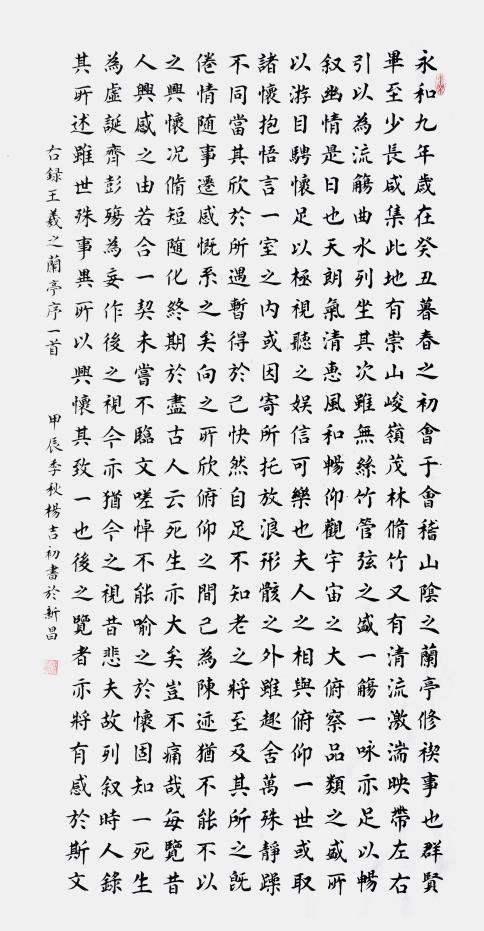 永和九年歲在癸丑暮春之初會于會稽山陰之蘭亭修禊事也群賢
畢至少長咸集此地有崇山峻嶺茂林脩竹又有清流激湍映帶左右
引以為流觴曲水列坐其次雖無絲竹管弦之盛一觴一咏亦足以暢
叙幽情是日也天朗氣清惠風和暢仰觀宇宙之大俯察品類之盛所
以游目騁懷足以極視聽之娱信可樂也夫人之相與俯仰一世或取
諸懷抱悟言一室之内或因寄所托放浪形骸之外雖趣舍萬殊靜躁
不同當其欣於所遇暫得於己快然自足不知老之將至及其所之既
倦情随事遷感慨系之矣向之所欣俯仰之間已為陳迹猶不能不以
之興懷况脩短随化終期於盡古人云死生亦大矣豈不痛哉每覽昔
人興感之由若合一契未嘗不臨文嗟悼不能喻之於懷固知一死生
為虛誕齊彭殤為妄作後之視今亦猶今之視昔悲夫故列叙時人錄
其所述雖世殊事異所以興懷其致一也後之覽者亦將有感於斯文
右録王羲之蘭亭序一首 甲辰季秋楊吉初書於新昌